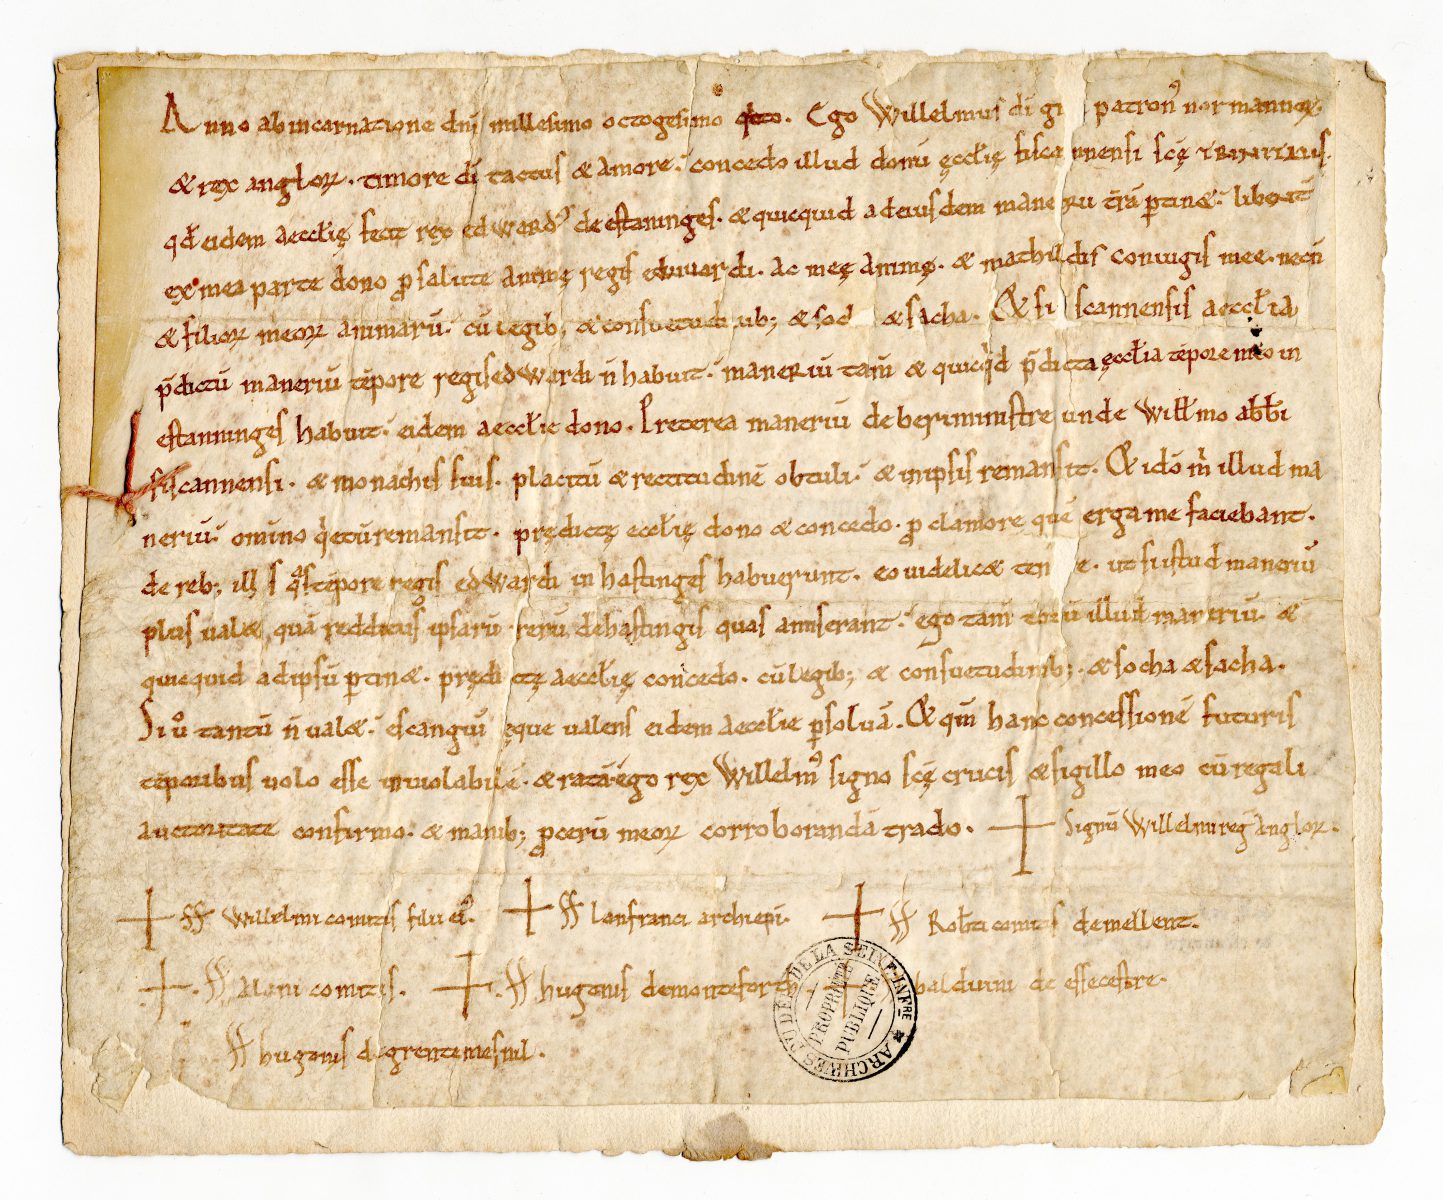 Anno ab incarnatione dn̄i millesimo octogesimo q̇to. Ego Willelmus dī gr̄ patron᾽ normannoꝝ.
& rex angloꝝ. timore dī tactus & amore. concedo illud donū ęccłię fiscannensi scę̄ TRINITATIS.
qđ eidem aeccłię fecit rex edward᾽ de estaninges. & quicquid ad eiusdem maneriū t̄rā ꝑtin&. libent̄
ex mea parte dono ꝓ salute animę regis eduuardi. ac meę animę. & mathildis coniugis mee. necn̄
& filioꝝ meoꝝ animarū. cū legib; & consuetudinib; & soc & sacha. Et si fiscannensis aeccłia
p̄dictū maneriū tēpore regis edwardi n̄ habuit. maneriū tam̄ & quicq̇d p̄dicta ęccłia tēpore meo in
estanninges habuit. eidem aeccłie dono. Preterea maneriū de beriministre unde Wiłłmo abb̄i
fiscannensi. & monachis suis. placitū & rectitudinē obtuli. & in ipsis remansit. Et idō m̄ illud ma
neriū. omīno q̇etū remansit. prędictę eccłię dono & concedo. ꝓ clamore quē erga me faciebant.
de reb; illis q̄s tēpore regis edwardi in hastinges habuerunt. eo videlic& ten e. ut si istud maneriū
plus ual& quā redditus ipsarū rerū de hastingis quas amiserant. ego tam̄ totū illud maneriū. &
quicquid ad ipsū ꝑtin&. prędictę aeccłię concedo. cū legib; & consuetudinib; & socha & sacha.
Si uͦ tantū n̄ ual&. escangiū ęque ualens eidem aeccłie ꝑsoluā. Et qm̄ hanc concessionē futuris
tēporibus uolo esse inuiolabilē. & ratā. ego rex Willelm᾽ signo scę̄ crucis & sigillo meo cū regali
auctoritate confirmo. & manib; ꝓcerū meoꝝ corroborandā trado. + Signū Willelmi reg̅ Angloꝝ.
+ SS Willelmi comitis filii ei᾽. + SS lanfranci archiepi̅. + SS Roƀti comitis de mellent.
+ SS Alani comitis. + SS hugonis de monteforth + baldwini de essecestre.
SS hugonis de grentemesnil.
ARCHIVES DU DÉPT DE LA SEINE-INFRE
PROPRIÉTÉ
PUBLIQUE